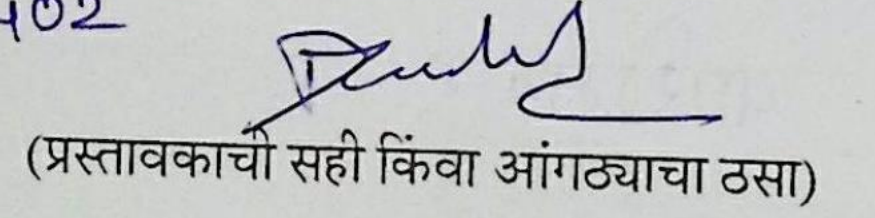 102
(प्रस्तावकाची सही किंवा आंगठ्याचा ठसा)